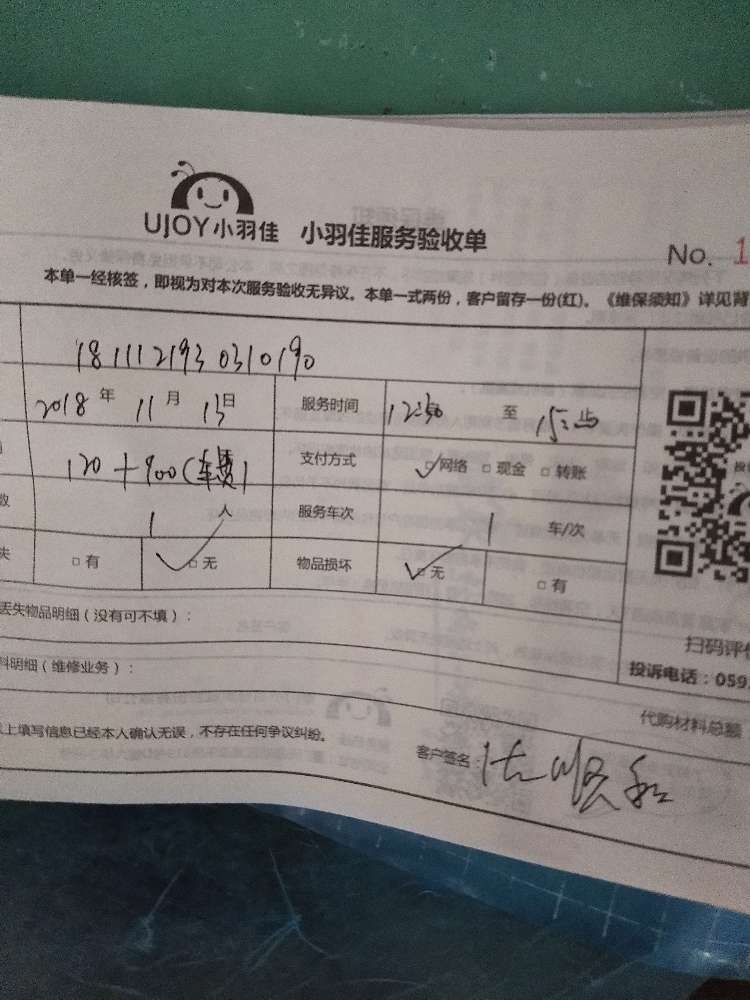 UJOY小羽佳 小羽佳服务验收单
No. 1
本单一经核签，即视为对本次服务验收无异议。本单一式两份，客户留存一份(红)。《维保须知》详见背
1811121930310190
2018年 11月 13日 服务时间 12:30 至 15:
120+900(车费) 支付方式 ☑网络 □现金 □转账
数 1 人 服务车次 1 车/次
失 □有 ☑无 物品损坏 ☑无 □有
丢失物品明细（没有可不填）：
扫码评价
料明细（维修业务）：
投诉电话：059
代购材料总额
上填写信息已经本人确认无误，不存在任何争议纠纷。
客户签名：顺和